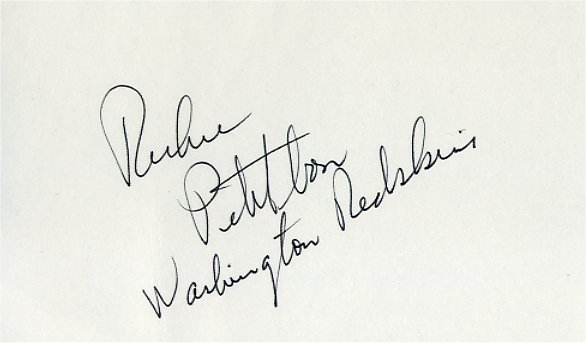 Richie
Petitbon
Washington Redskins